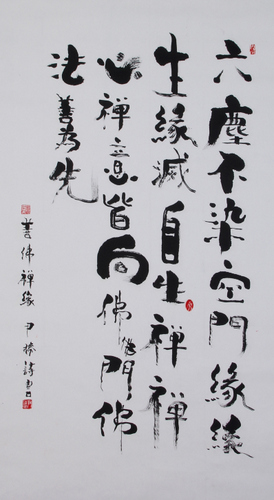 六塵不染空門緣緣
生緣滅自生禪禪
心禪意皆向佛佛門佛
法善為先
善佛禪缘 尹